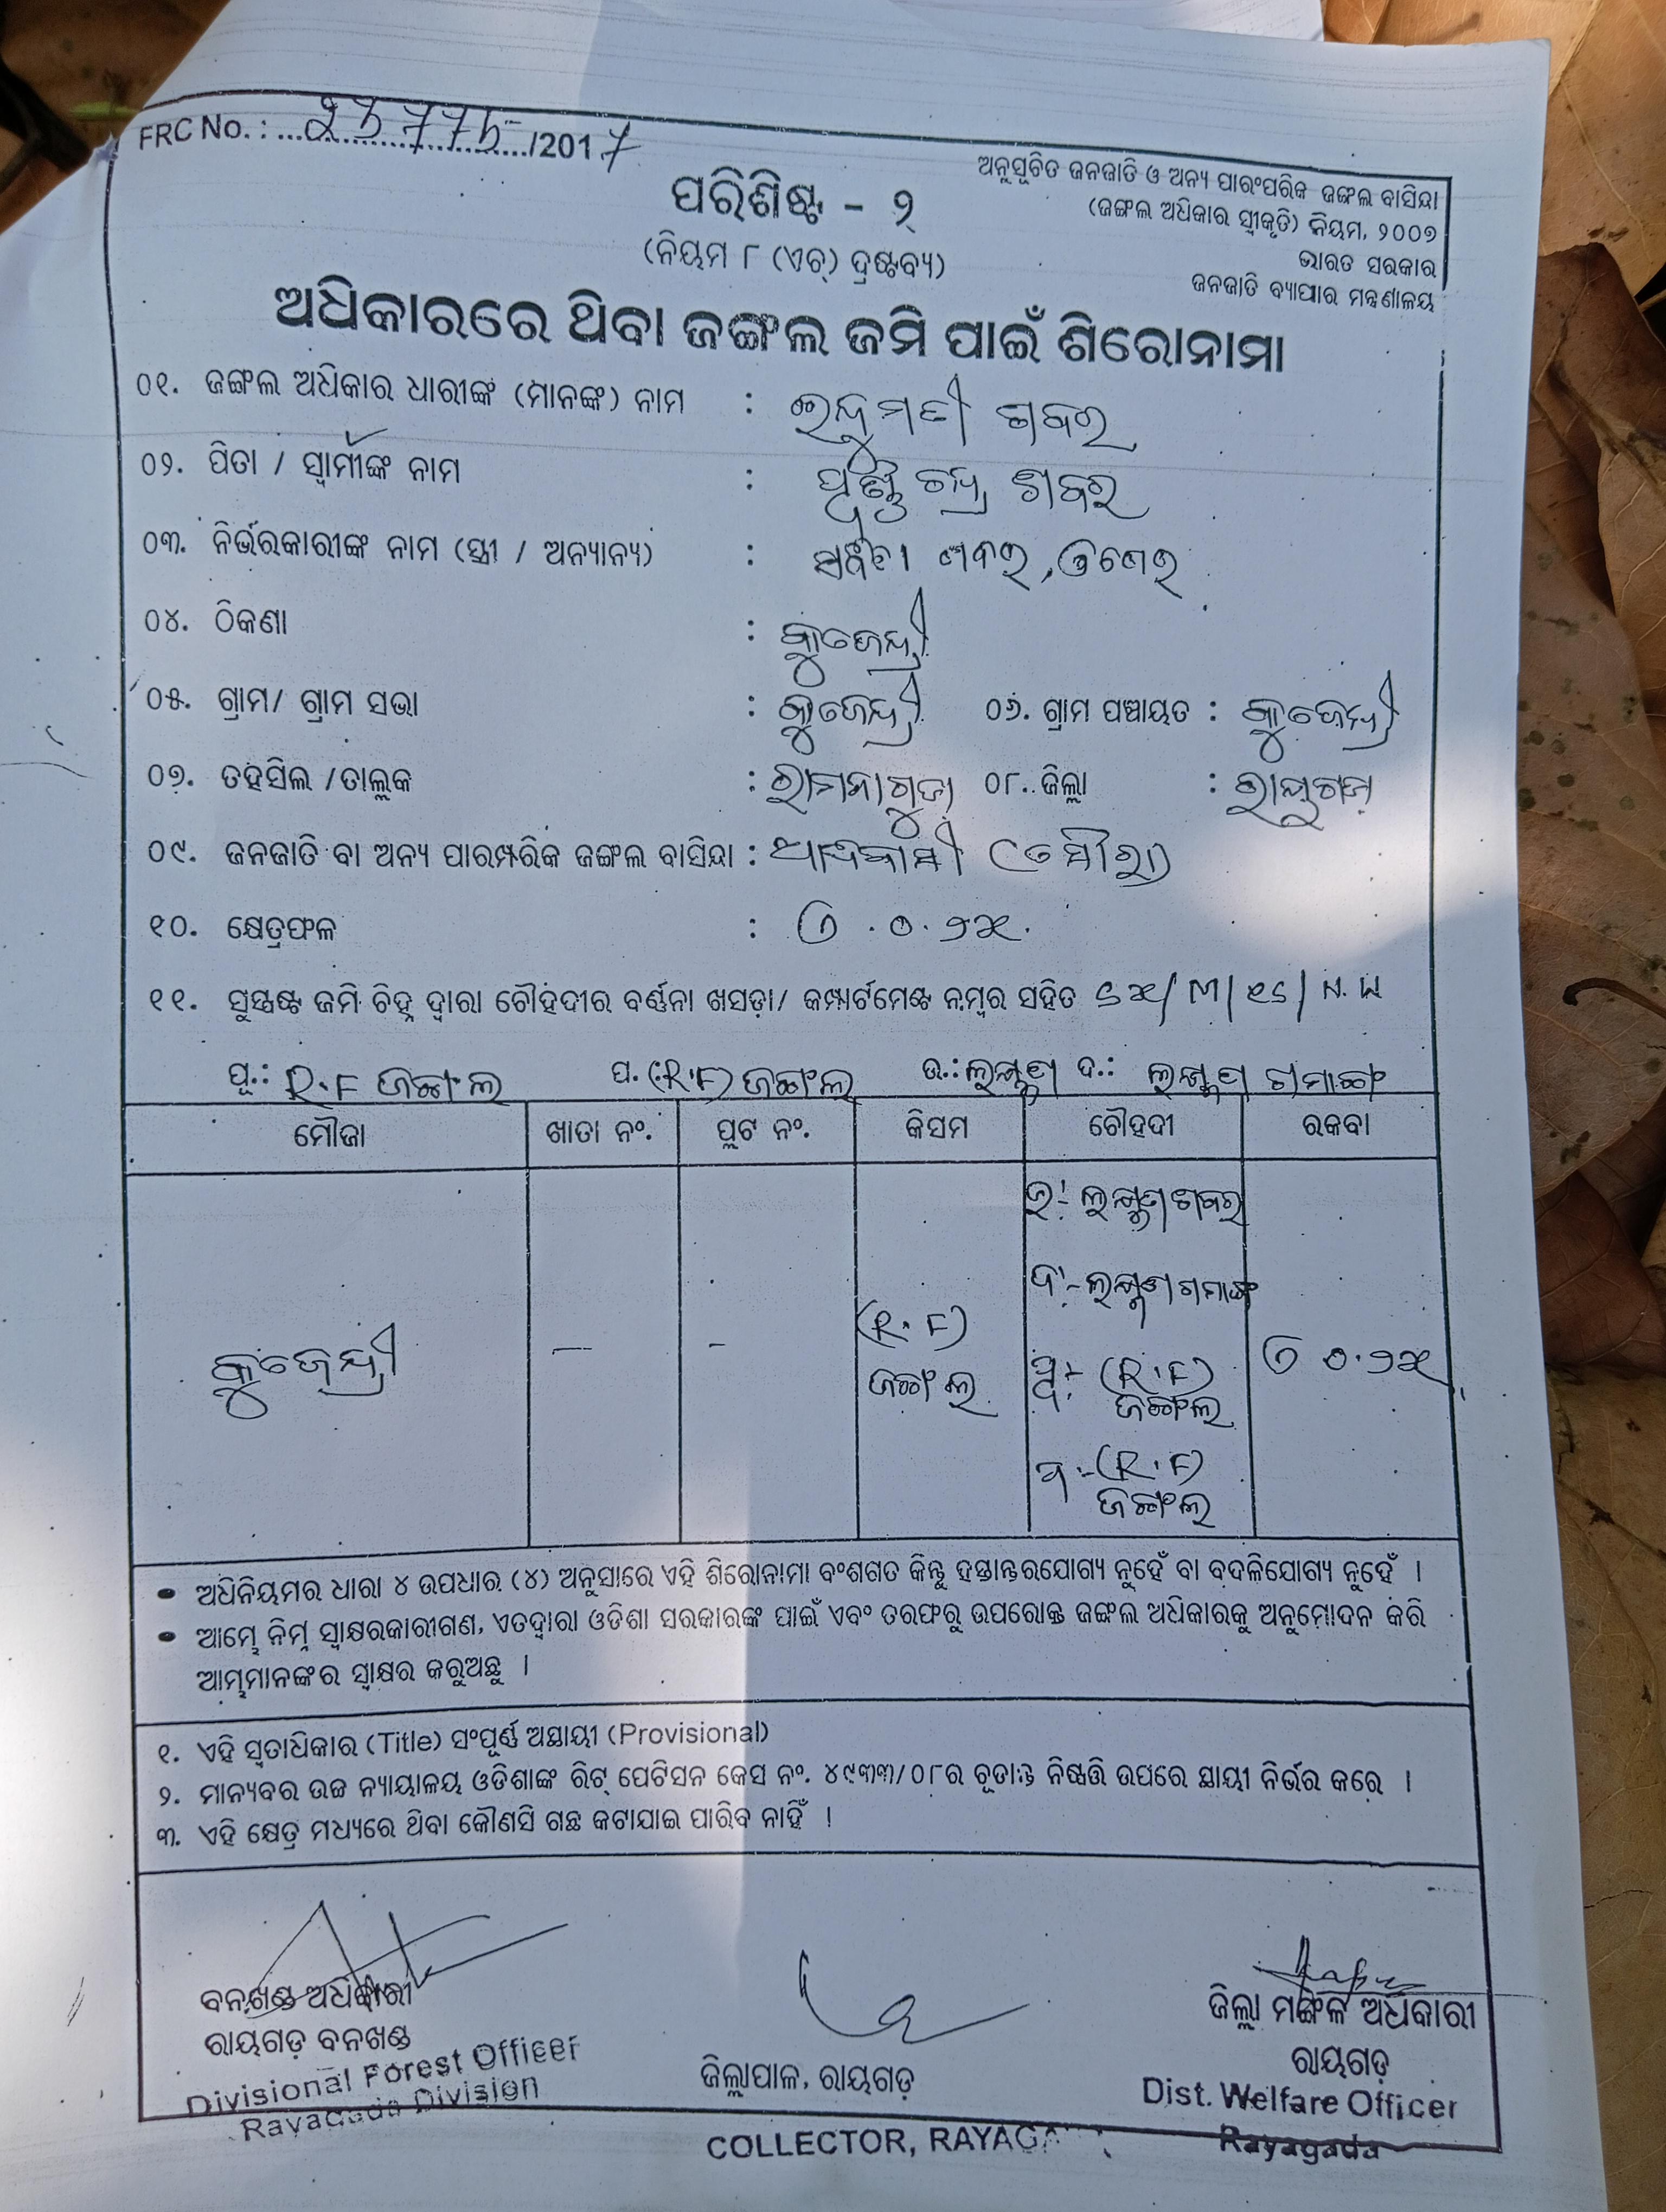 FRC No. : ...23775.../2017
ଅନୁସୂଚିତ ଜନଜାତି ଓ ଅନ୍ୟ ପାରଂପରିକ ଜଙ୍ଗଲ ବାସିନ୍ଦା
(ଜଙ୍ଗଲ ଅଧିକାର ସ୍ୱୀକୃତି) ନିୟମ, ୨୦୦୭
ଭାରତ ସରକାର
ଜନଜାତି ବ୍ୟାପାର ମନ୍ତ୍ରଣାଳୟ
ପରିଶିଷ୍ଟ - ୨
(ନିୟମ ୮ (ଏଚ୍) ଦ୍ରଷ୍ଟବ୍ୟ)
ଅଧିକାରରେ ଥିବା ଜଙ୍ଗଲ ଜମି ପାଇଁ ଶିରୋନାମା
୦୧. ଜଙ୍ଗଲ ଅଧିକାର ଧାରୀଙ୍କ (ମାନଙ୍କ) ନାମ : ଇନ୍ଦୁମତୀ ଶବର
୦୨. ପିତା / ସ୍ୱାମୀଙ୍କ ନାମ : ପୂର୍ଣ୍ଣ ଚନ୍ଦ୍ର ଶବର
୦୩. ନିର୍ଭରକାରୀଙ୍କ ନାମ (ସ୍ତ୍ରୀ / ଅନ୍ୟାନ୍ୟ) : ଶବର,
୦୪. ଠିକଣା : କୁଜେନ୍ଦ୍ରୀ
୦୫. ଗ୍ରାମ/ ଗ୍ରାମ ସଭା : କୁଜେନ୍ଦ୍ରୀ ୦୬. ଗ୍ରାମ ପଞ୍ଚାୟତ : କୁଜେନ୍ଦ୍ରୀ
୦୭. ତହସିଲ /ତାଲୁକ : ରାମନାଗୁଡା ୦୮. ଜିଲ୍ଲା : ରାୟଗଡା
୦୯. ଜନଜାତି ବା ଅନ୍ୟ ପାରମ୍ପରିକ ଜଙ୍ଗଲ ବାସିନ୍ଦା : ଆଦିବାସୀ (ସୌରା)
୧୦. କ୍ଷେତ୍ରଫଳ : ୦.୨୪
୧୧. ସୁସ୍ପଷ୍ଟ ଜମି ଚିହ୍ନ ଦ୍ୱାରା ଚୌହଦୀର ବର୍ଣ୍ଣନା ଖସଡ଼ା/ କମ୍ପାର୍ଟମେଣ୍ଟ ନମ୍ବର ସହିତ
ପୂ.: R.F ଜଙ୍ଗଲ ପ. (R.F) ଜଙ୍ଗଲ ଉ.: ଲକ୍ଷ୍ମଣ ଦ.: ଲକ୍ଷ୍ମଣ ଗମାଙ୍ଗ
ମୌଜା ଖାତା ନଂ. ପ୍ଲଟ ନଂ. କିସମ ଚୌହଦୀ ରକବା
ଉ:- ଲକ୍ଷ୍ମଣ ଶବର
ଦ:- ଲକ୍ଷ୍ମଣ ଗମାଙ୍ଗ
କୁଜେନ୍ଦ୍ରୀ — - (R.F) ଜଙ୍ଗଲ ପୂ:- (R.F) ଜଙ୍ଗଲ ୦.୨୪
ପ:- (R.F) ଜଙ୍ଗଲ
• ଅଧିନିୟମର ଧାରା ୪ ଉପଧାର (୪) ଅନୁସାରେ ଏହି ଶିରୋନାମା ବଂଶଗତ କିନ୍ତୁ ହସ୍ତାନ୍ତରଯୋଗ୍ୟ ନୁହେଁ ବା ବଦଳିଯୋଗ୍ୟ ନୁହେଁ ।
• ଆମ୍ଭେ ନିମ୍ନ ସ୍ୱାକ୍ଷରକାରୀଗଣ, ଏତଦ୍ୱାରା ଓଡିଶା ସରକାରଙ୍କ ପାଇଁ ଏବଂ ତରଫରୁ ଉପରୋକ୍ତ ଜଙ୍ଗଲ ଅଧିକାରକୁ ଅନୁମୋଦନ କରି
ଆମ୍ଭମାନଙ୍କର ସ୍ୱାକ୍ଷର କରୁଅଛୁ ।
୧. ଏହି ସ୍ୱତାଧିକାର (Title) ସଂପୂର୍ଣ୍ଣ ଅସ୍ଥାୟୀ (Provisional)
୨. ମାନ୍ୟବର ଉଚ୍ଚ ନ୍ୟାୟାଳୟ ଓଡିଶାଙ୍କ ରିଟ୍ ପେଟିସନ କେସ ନଂ. ୪୯୩୩/୦୮ର ଚୂଡାନ୍ତ ନିଷ୍ପତ୍ତି ଉପରେ ସ୍ଥାୟୀ ନିର୍ଭର କରେ ।
୩. ଏହି କ୍ଷେତ୍ର ମଧ୍ୟରେ ଥିବା କୌଣସି ଗଛ କଟାଯାଇ ପାରିବ ନାହିଁ ।
ବନଖଣ୍ଡ ଅଧିକାରୀ
ରାୟଗଡ଼ ବନଖଣ୍ଡ
Divisional Forest Officer
Rayagada Division
ଜିଲ୍ଲାପାଳ, ରାୟଗଡ଼
COLLECTOR, RAYAGA
ଜିଲ୍ଲା ମଙ୍ଗଳ ଅଧିକାରୀ
ରାୟଗଡ଼
Dist. Welfare Officer
Rayagada